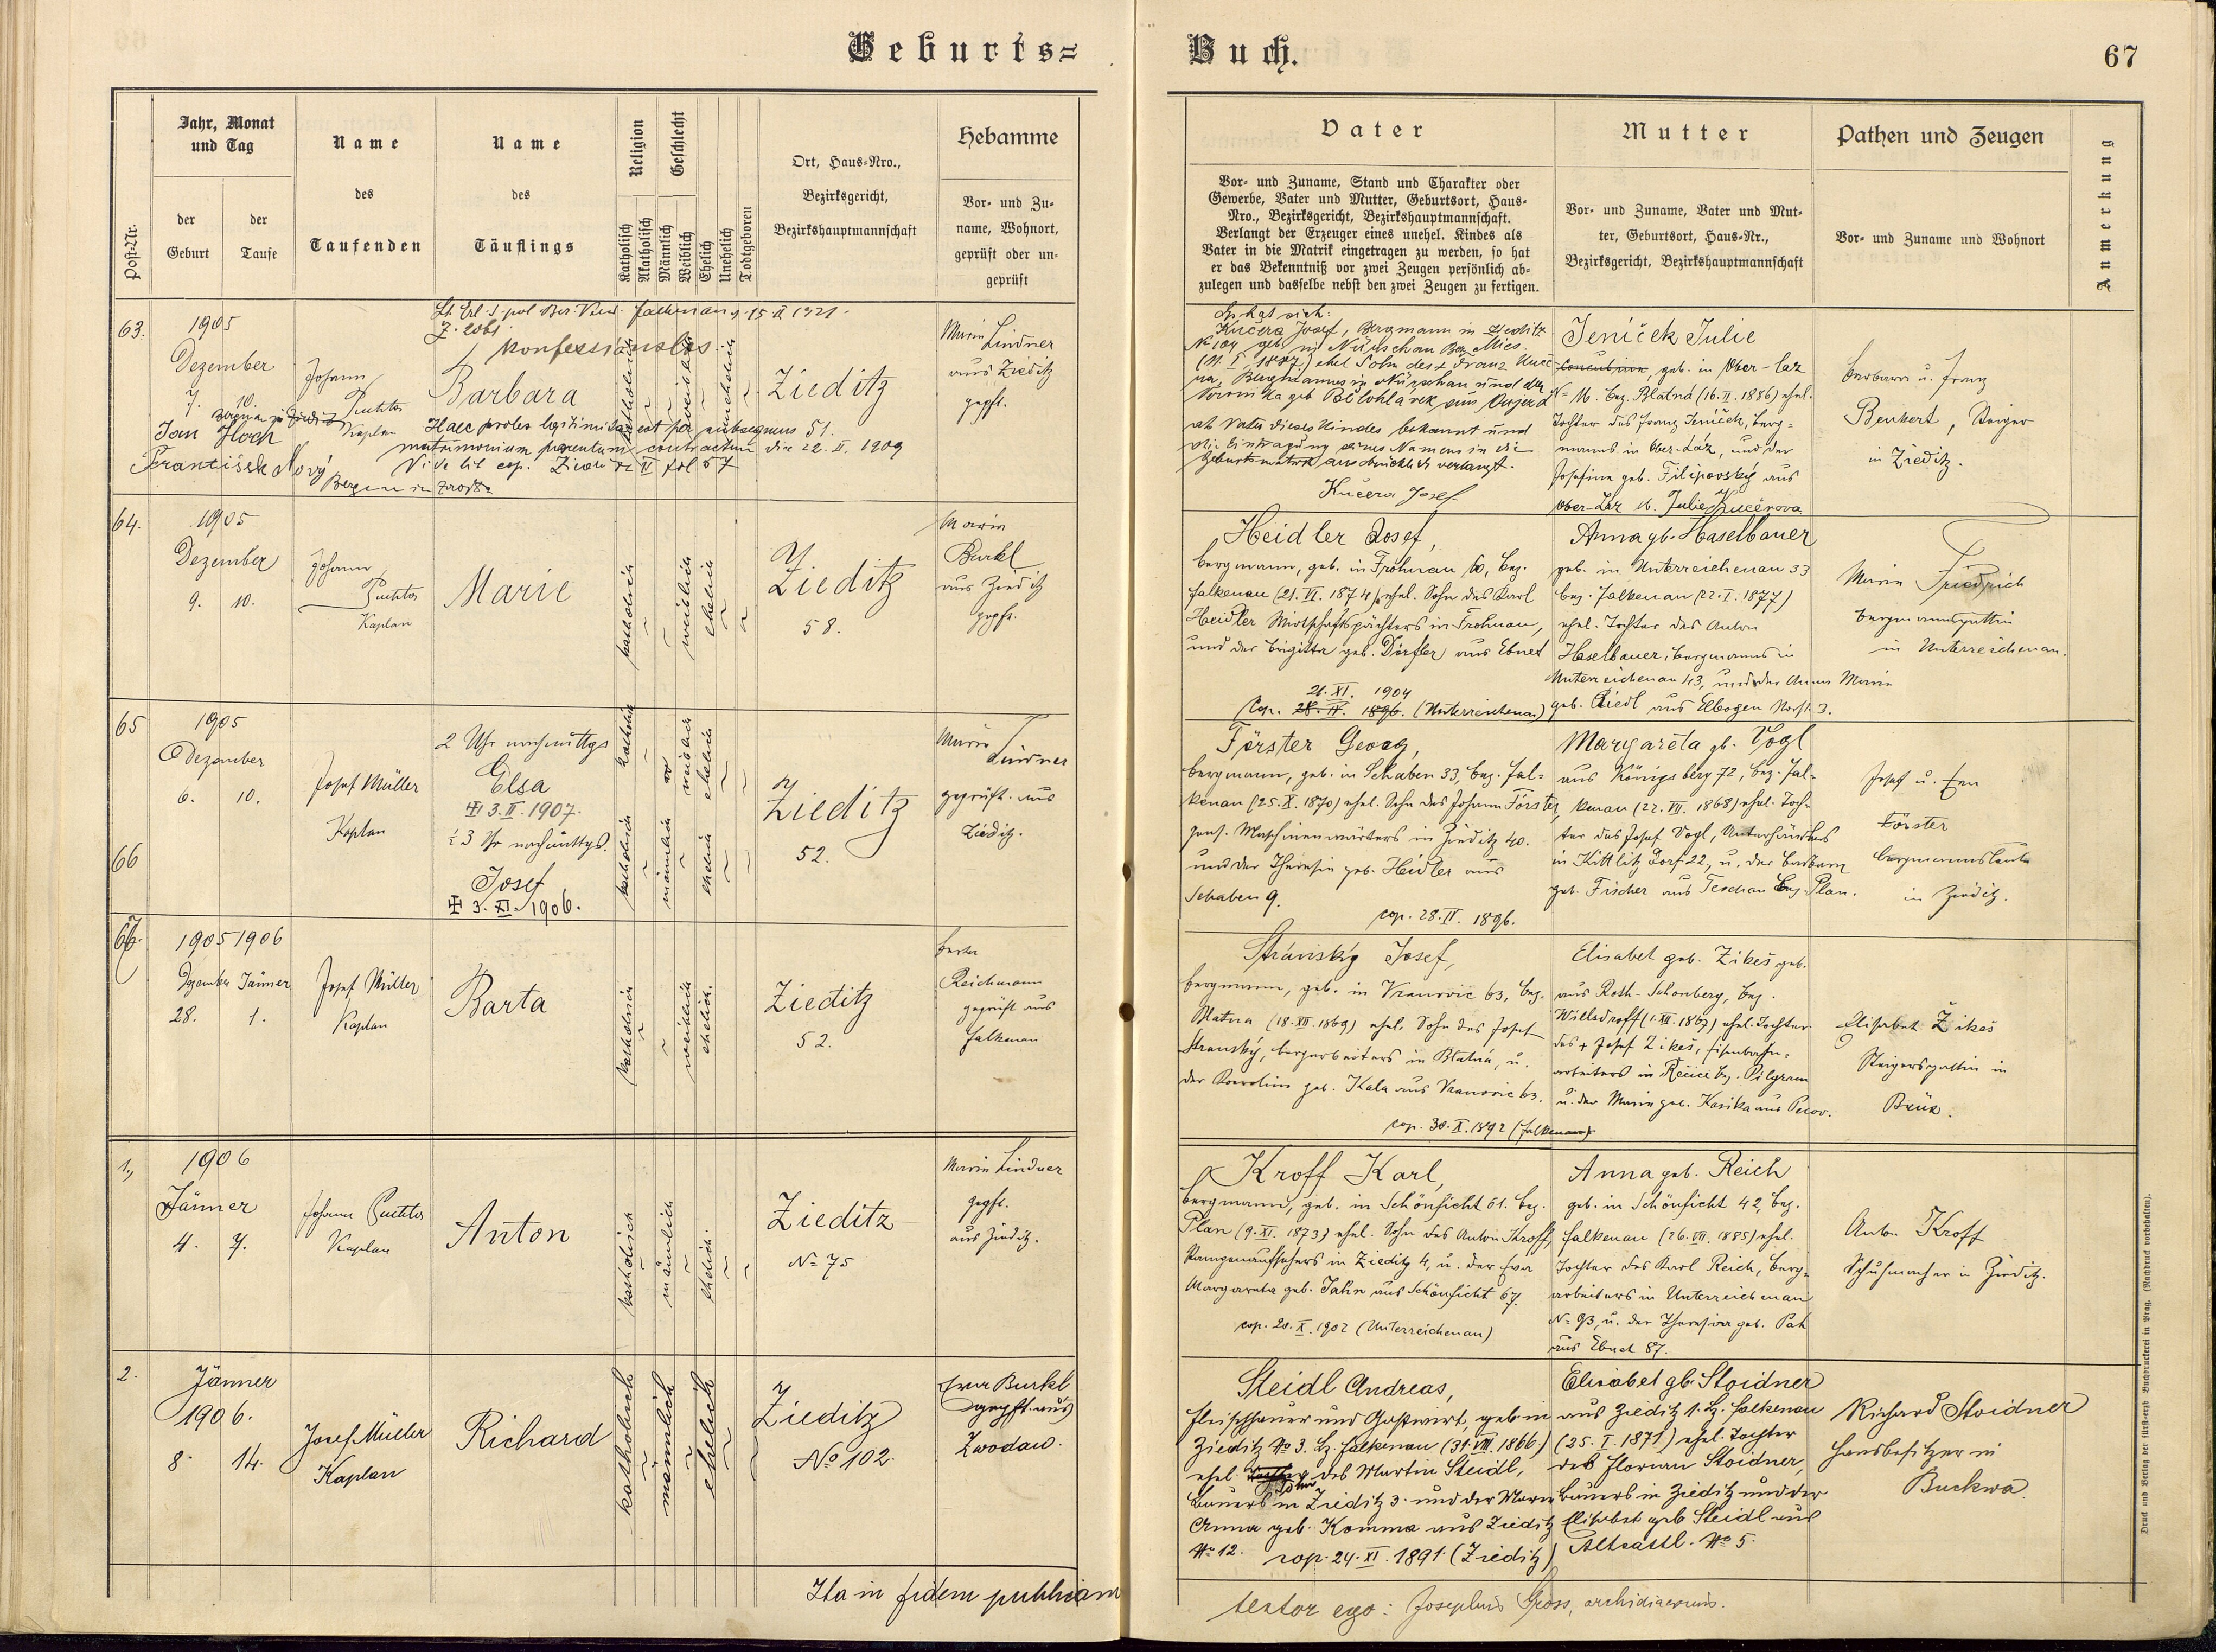 Geburts=
Buch.
67
Post-Nr.
Jahr, Monat
und Tag
der
Geburt
der
Taufe
Name
des
Taufenden
Name
des
Täuflings
Religion
Katholisch
Akatholisch
Geschlecht
Männlich
Weiblich
Ehelich
Unehelich
Todtgeboren
Ort, Haus-Nro.,
Bezirksgericht,
Bezirkshauptmannschaft
Hebamme
Vor- und Zu-
name, Wohnort,
geprüft oder un-
geprüft
Vater
Vor- und Zuname, Stand und Charakter oder
Gewerbe, Vater und Mutter, Geburtsort, Haus-
Nro., Bezirksgericht, Bezirkshauptmannschaft.
Verlangt der Erzeuger eines unehel. Kindes als
Vater in die Matrik eingetragen zu werden, so hat
er das Bekenntniß vor zwei Zeugen persönlich ab-
zulegen und dasselbe nebst den zwei Zeugen zu fertigen.
Mutter
Vor- und Zuname, Vater und Mut-
ter, Geburtsort, Haus-Nr.,
Bezirksgericht, Bezirkshauptmannschaft
Pathen und Zeugen
Vor- und Zuname und Wohnort
Anmerkung
63.
1905
Dezember
7. 10.
Johann
Puchta
Kaplan
konfessionslos
Barbara
Haec proles legitimata est per subsequens
matrimonium parentum contractum die 22. II. 1909
Jan Hoch
František Nový
katholisch
weiblich
unehelich
Zieditz
51.
Marie
Lindner
aus Zieditz
gepft.
Kučera Josef, Bergmann in Zieditz
als Vater dieses Kindes bekannt und
die Eintragung seines Namens in die
Geburtsmatrik ausdrücklich verlangt.
Kučera Josef
Jeníček Julie
geb. in Ober-Laz
No 16. Bez. Blatná (16. II. 1886) ehel.
Tochter des Franz Jeníček, Berg-
manns in Ober-Láz, und der
Josefine geb. Filipovský aus
Ober-Láz 16. Julie Kučerova
Barbara u. Franz
Benkert, Steiger
in Zieditz.
64.
1905
Dezember
9. 10.
Johann
Puchta
Kaplan
Marie
katholisch
weiblich
ehelich
Zieditz
58.
Marie
Burkl
aus Zieditz
gepft.
Heidler Josef,
Bergmann, geb. in Frohnau 60, Bez.
Falkenau (21. VI. 1874) ehel. Sohn des Karl
Heidler Wirtschaftspächters in Frohnau,
und der Brigitta geb. Dörfler aus Ebnet
21. XI. 1904
Cop. 28. IV. 1896. (Unterreichenau)
Anna gb. Haselbauer
geb. in Unterreichenau 33
Bez. Falkenau (22. I. 1877)
ehel. Tochter des Anton
Haselbauer, Bergmanns in
Unterreichenau 43, und der Anna Maria
geb. Riedl aus Elbogen Vorst. 3.
Marie Friedrich
Bergmannsgattin
in Unterreichenau.
65
66
1905
Dezember
6. 10.
Josef Müller
Kaplan
2 Uhr nachmittgs
Elsa
✠ 3. II. 1907.
½3 Uhr nachmittgs.
Josef
✠ 3. XI. 1906.
katholisch
weiblich
ehelich
katholisch
männlich
ehelich
Zieditz
52.
Marie
Lindner
geprüft. aus
Zieditz.
Förster Georg,
Bergmann, geb. in Schaben 33, Bez. Fal-
kenau (25. X. 1870) ehel. Sohn des Johann Förster,
pens. Maschinenwärters in Zieditz 40.
und der Theresia geb. Heidler aus
Schaben 9.
cop. 28. IV. 1896.
Margareta gb. Vogl
aus Königsberg 72, Bez. Fal-
kenau (22. VII. 1868) ehel. Toch-
ter des Josef Vogl, Unterhändlers
in Kittlitz Dorf 22, u. der Barbara
geb. Fischer aus Teschau Bez. Plan.
Josef u. Eva
Förster
Bergmannsleute
in Zieditz.
67.
1905 1906
Dezember Jänner
28. 1.
Josef Müller
Kaplan
Barta
katholisch
weiblich
ehelich.
Zieditz
52.
Reichmann
geprüft aus
Falkenau
Stránský Josef,
Bergmann, geb. in Vranovic 63, Bez.
Blatna (18. XII. 1869) ehel. Sohn des Josef
Stranský, Bergarbeiters in Blatná, u.
der Karolina geb. Kala aus Vranovic 63.
cop. 30. X. 1892 (Falkenau)
Elisabet geb. Zikeš geb.
aus Roth-Schönberg, Bez.
Willsdroff (1. XII. 1867) ehel. Tochter
des + Josef Zikeš, Eisenbahn-
arbeiters in Řečice Bez. Pilgram
u. der Marie geb. Kasika aus Pecov.
Elisabet Zikeš
Steigersgattin in
Brüx.
1.,
1906
Jänner
4. 7.
Johann Puchta
Kaplan
Anton
katholisch
männlich
ehelich.
Zieditz
No 75
Marie Lindner
gepft.
aus Zieditz.
Kroff Karl,
Bergmann, geb. in Schönficht 61. Bez.
Plan (9. XI. 1873) ehel. Sohn des Anton Kroff,
Rampenaufsehers in Zieditz 4, u. der Eva
Margareta geb. Jahn aus Schönficht 67.
cop. 20. X. 1902 (Unterreichenau)
Anna geb. Reich
geb. in Schönficht 42, Bez.
Falkenau (26. VII. 1885) ehel.
Tochter des Karl Reich, Berg-
arbeiters in Unterreichenau
No 93, u. der Theresia geb. Pah
aus Ebnet 87.
Anton Kroff
Schuhmacher in Zieditz.
2.
Jänner
1906.
8. 14.
Josef Müller
Kaplan
Richard
katholisch
männlich
ehelich
Zieditz
No 102.
Eva Burkl
gepft. aus
Zwodau.
Steidl Andreas,
Fleischhauer und Gastwirt, geb. in
Zieditz No 3. Bz. Falkenau (31. VIII. 1866.)
ehel. Sohn des Martin Steidl,
Bauers in Zieditz 3. und der Maria
Anna geb. Komma aus Zieditz
No 12. cop. 24. XI. 1891. (Zieditz)
Elisabet gb. Stoidner
aus Zieditz 1. Bz. Falkenau
(25. I. 1871) ehel. Tochter
des Florian Stoidner,
Bauers in Zieditz und der
Elisabet geb. Steidl aus
Altsattl. No 5.
Richard Stoidner
Hausbesitzer in
Buckwa.
Ita in fidem publicam
testor ego: Josephus Gross, archidiaconus.
Druck und Verlag der fürst-erzb. Buchdruckerei in Prag. (Nachdruck vorbehalten).